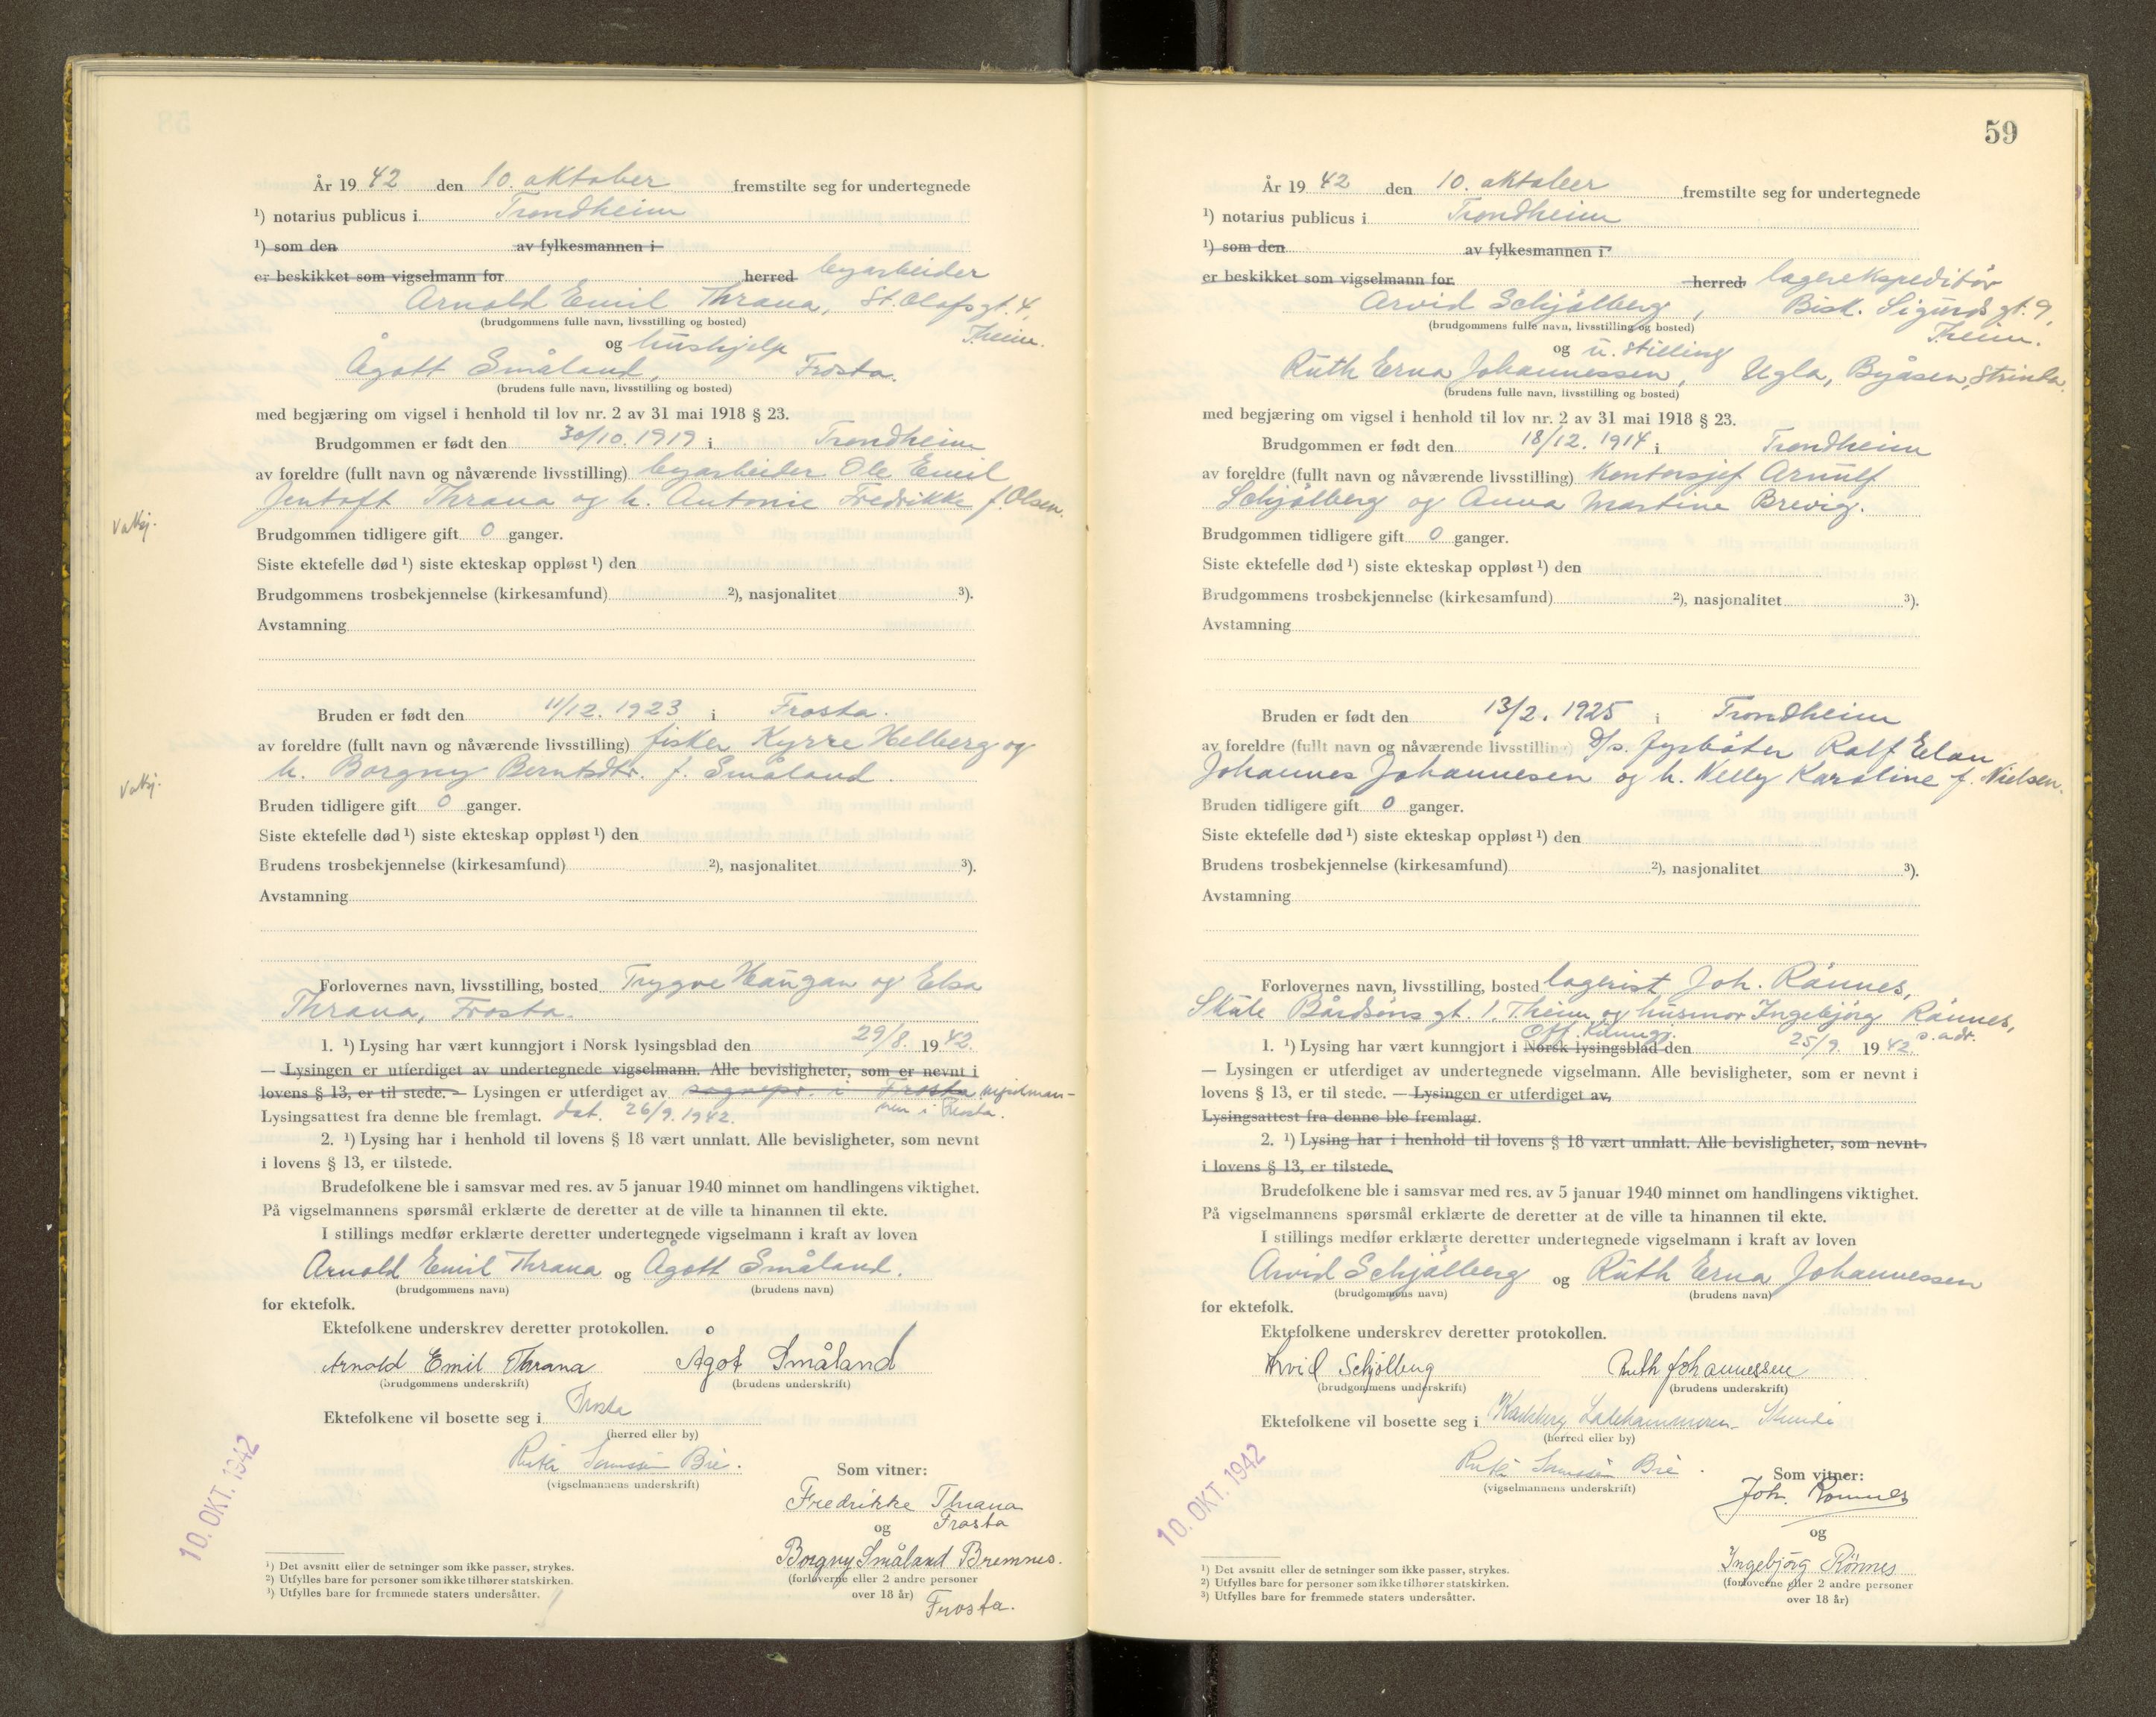 År 19 42 den 10. oktober fremstilte seg for undertegnede
¹) notarius publicus i Trondheim
¹) som den av fylkesmannen i
er beskikket som vigselmann for herred byarbeider
Arnold Emil Thrana, St. Olafsgt. 4,
(brudgommens fulle navn, livsstilling og bosted) Theim.
og hushjelp
Ågott Småland, Frosta.
(brudens fulle navn, livsstilling og bosted)
med begjæring om vigsel i henhold til lov nr. 2 av 31 mai 1918 § 23.
Brudgommen er født den 30/10. 1919 i Trondheim
av foreldre (fullt navn og nåværende livsstilling) byarbeider Ole Emil
Jentoft Thrana og h. Antonie Fredrikke f. Olsen.
Brudgommen tidligere gift 0 ganger.
Siste ektefelle død ¹) siste ekteskap oppløst ¹) den
Brudgommens trosbekjennelse (kirkesamfund) ²), nasjonalitet ³).
Avstamning
Bruden er født den 11/12. 1923 i Frosta.
av foreldre (fullt navn og nåværende livsstilling) fisker Kyrre Helberg og
h. Borgny Berntsdtr. f. Småland.
Bruden tidligere gift 0 ganger.
Siste ektefelle død ¹) siste ekteskap oppløst ¹) den
Brudens trosbekjennelse (kirkesamfund) ²), nasjonalitet ³).
Avstamning
Forlovernes navn, livsstilling, bosted Trygve Haugan og Elsa
Thrana, Frosta.
1. ¹) Lysing har vært kunngjort i Norsk lysingsblad den 29/8. 19 42.
— Lysingen er utferdiget av undertegnede vigselmann. Alle bevisligheter, som er nevnt i
lovens § 13, er til stede. — Lysingen er utferdiget av sognepr. i Frosta
Lysingsattest fra denne ble fremlagt. dat. 26/9. 1942. nen i Frosta.
2. ¹) Lysing har i henhold til lovens § 18 vært unnlatt. Alle bevisligheter, som nevnt
i lovens § 13, er tilstede.
Brudefolkene ble i samsvar med res. av 5 januar 1940 minnet om handlingens viktighet.
På vigselmannens spørsmål erklærte de deretter at de ville ta hinannen til ekte.
I stillings medfør erklærte deretter undertegnede vigselmann i kraft av loven
Arnold Emil Thrana og Ågott Småland.
(brudgommens navn) (brudens navn)
for ektefolk.
Ektefolkene underskrev deretter protokollen.
Arnold Emil Thrana Ågot Småland
(brudgommens underskrift) (brudens underskrift)
Ektefolkene vil bosette seg i Frosta
(herred eller by)
Som vitner:
(vigselmannens underskrift)
Fredrikke Thrana
og Frosta
Borgny Småland Bremnes.
(forloverne eller 2 andre personer
over 18 år) Frosta.
10. OKT. 1942
¹) Det avsnitt eller de setninger som ikke passer, strykes.
²) Utfylles bare for personer som ikke tilhører statskirken.
³) Utfylles bare for fremmede staters undersåtter.
59
År 19 42 den 10. oktober fremstilte seg for undertegnede
¹) notarius publicus i Trondheim
¹) som den av fylkesmannen i
er beskikket som vigselmann for herred lagerekspeditör
Arvid Schjölberg, Bisk. Sigurds gt. 9,
(brudgommens fulle navn, livsstilling og bosted) Theim.
og u. stilling
Ruth Erna Johannessen, Ugla, Byåsen, Strinda.
(brudens fulle navn, livsstilling og bosted)
med begjæring om vigsel i henhold til lov nr. 2 av 31 mai 1918 § 23.
Brudgommen er født den 18/12. 1914 i Trondheim
av foreldre (fullt navn og nåværende livsstilling) kontorsjef Arnulf
Schjölberg og Anna Martine Brevig.
Brudgommen tidligere gift 0 ganger.
Siste ektefelle død ¹) siste ekteskap oppløst ¹) den
Brudgommens trosbekjennelse (kirkesamfund) ²), nasjonalitet ³).
Avstamning
Bruden er født den 13/2. 1925 i Trondheim
av foreldre (fullt navn og nåværende livsstilling) D/s. fyrböter Ralf Elan
Johannes Johannesen og h. Nelly Karoline f. Nielsen.
Bruden tidligere gift 0 ganger.
Siste ektefelle død ¹) siste ekteskap oppløst ¹) den
Brudens trosbekjennelse (kirkesamfund) ²), nasjonalitet ³).
Avstamning
Forlovernes navn, livsstilling, bosted lagerist Joh. Rönnes,
Skule Bårdsöns gt. 1. Theim og husmor Ingebjörg Rönnes,
s. adr.
Off. Kunngj.
1. ¹) Lysing har vært kunngjort i Norsk lysingsblad den 25/9. 19 42.
— Lysingen er utferdiget av undertegnede vigselmann. Alle bevisligheter, som er nevnt i
lovens § 13, er til stede. — Lysingen er utferdiget av,
Lysingsattest fra denne ble fremlagt.
2. ¹) Lysing har i henhold til lovens § 18 vært unnlatt. Alle bevisligheter, som nevnt
i lovens § 13, er tilstede.
Brudefolkene ble i samsvar med res. av 5 januar 1940 minnet om handlingens viktighet.
På vigselmannens spørsmål erklærte de deretter at de ville ta hinannen til ekte.
I stillings medfør erklærte deretter undertegnede vigselmann i kraft av loven
Arvid Schjölberg og Ruth Erna Johannessen
(brudgommens navn) (brudens navn)
for ektefolk.
Ektefolkene underskrev deretter protokollen.
Arvid Schjölberg Ruth Johannessen
(brudgommens underskrift) (brudens underskrift)
Ektefolkene vil bosette seg i Ladehammeren
(herred eller by)
Som vitner:
(vigselmannens underskrift)
Joh. Rönnes
og
Ingebjörg Rönnes
(forloverne eller 2 andre personer
over 18 år)
10. OKT. 1942
¹) Det avsnitt eller de setninger som ikke passer, strykes.
²) Utfylles bare for personer som ikke tilhører statskirken.
³) Utfylles bare for fremmede staters undersåtter.